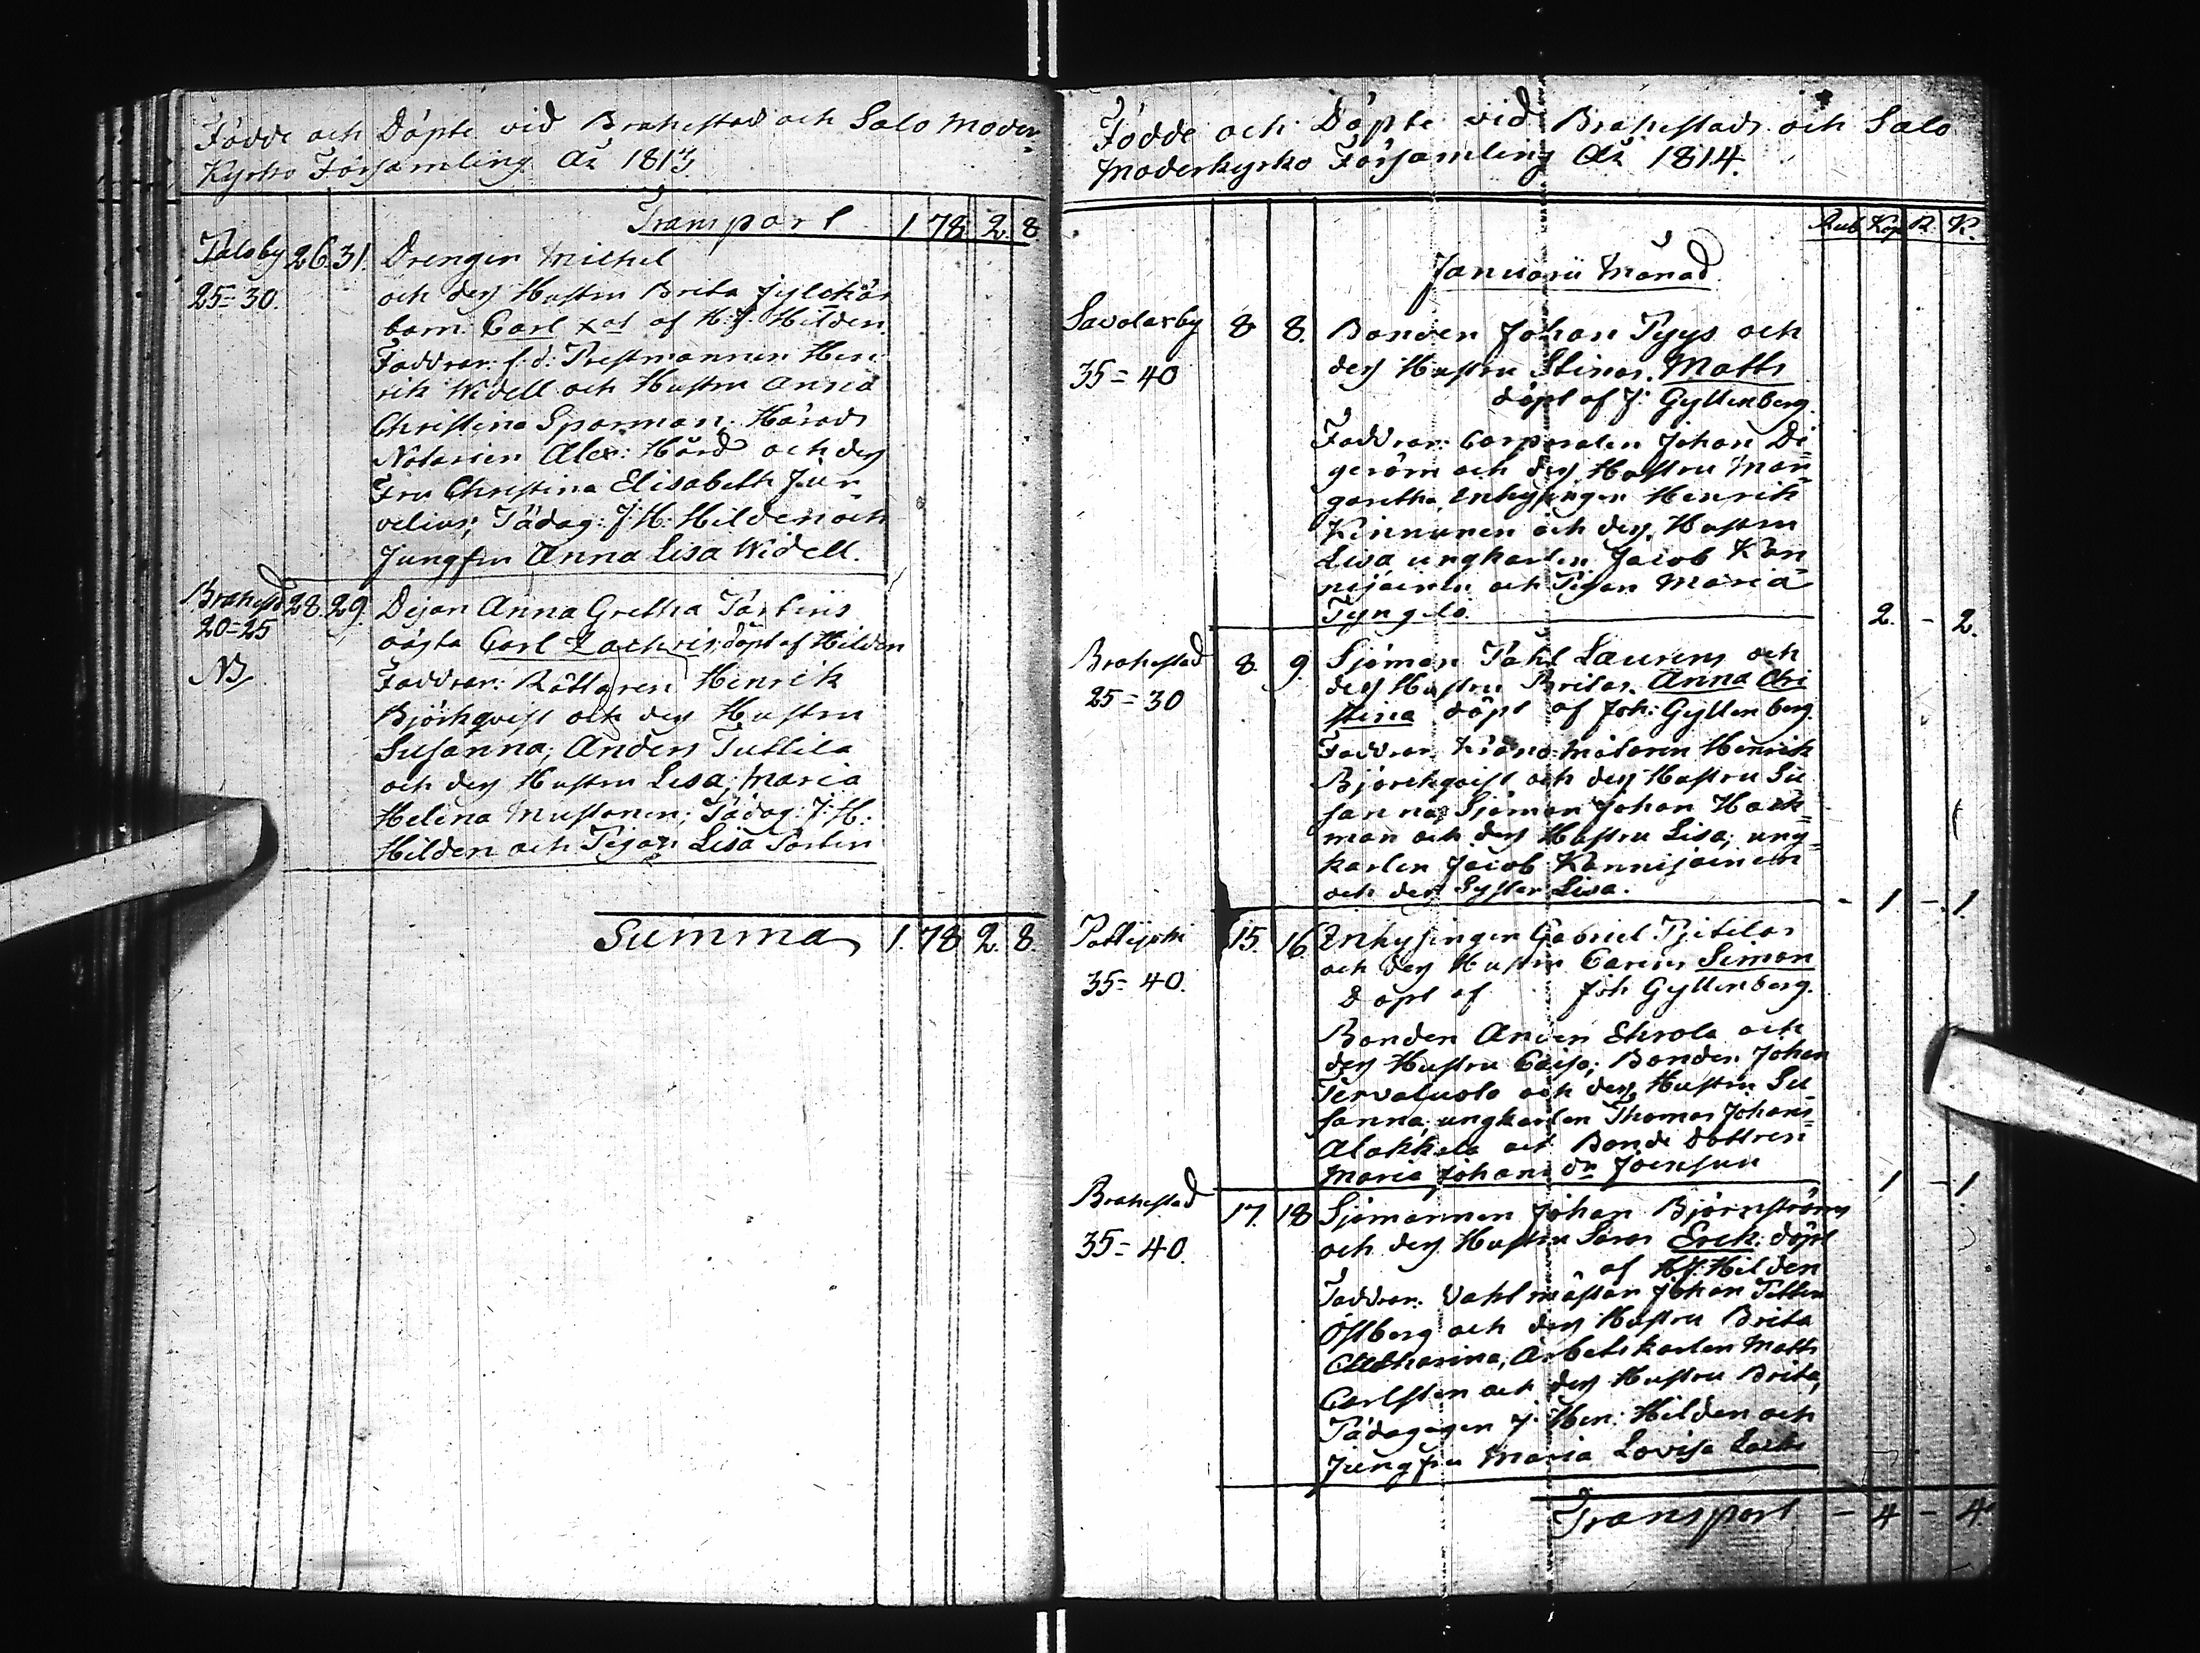 Födde och Döpte vid Brahestad och Salo Moder
Kyrko Församling År 1813.
Transport 1 78 2 8
Paloby 26. 31. Drengen Michel
25=30. och dess Hustru Brita
barn Carl xst af H: J: Hilden.
Faddrar: f.d. Prestmannen Hen
rik Widell och Hustru Anna
Christina Sparman, Härads
Notarien Alex: Hård och dess
Fru Christina Elisabeth Jur
velius; Pädag: J: H: Hilden och
Jungfru Anna Lisa Widell.
Brahestd 28. 29. Pijan Anna Gretha
20=25 oägta Carl Zachris, döpt af Hilden
NB Faddrar: Henrik
Björkqvist och dess Hustru
Susanna; Anders Tuttila
och dess Hustru Lisa; Maria
Helena Mustonen; Pädag: J: H:
Hilden och Pigan Lisa
Summa 1. 78 2. 8.
Födde och Döpte vid Brahestads och Salo
Moderkyrko Församling År 1814.
Rub Kop R. K.
Januarii Månad.
Savolaxby 8 8. Bonden Johan Pyys och
35=40 dess Hustru Stinas. Matts
döpt af J: Gyllenberg.
Faddrar: Corporalen Johan Di
gerörn och dess Hustru Mar
garetha, Inhysingen Henrik
Kinnunen och dess Hustru
Lisa ungkarlen Jacob Kan
nijainen och Pigan Maria
Tyngelä. 2. - 2.
Brahestad 8. 9. Sjöman Påhl Laurens och
25=30 dess Hustru Britas. Anna Chri
stina döpt af Joh: Gyllenberg.
Faddrar: Henrik
Björckqvist och dess Hustru Su
sanna; Sjöman Johan Hack
man och dess Hustru Lisa; ung
karlen Jacob Kannijainen
och dess Syster Lisa. - 1 - 1.
Pattijoki 15. 16. Inhysingen Gabriel Pietilas
35=40. och dess Hustru Carins Simon
Döpt af Joh Gyllenberg.
Bonden Anders och
dess Hustru Caisa; Bonden Johan
Tervaluoto och dess Hustru Su
sanna, ungkarlen Thomas Johans
Alakkala och Bonde dottren
Maria Johans dr Joensuu 1 - 1.
Brahestad 17. 18 Sjömannen Johan Björnströms
35=40. och dess Hustru Saras Erik. döpt
af H J: Hilden
Faddrar: Johan
Östberg och dess Hustru Brita
Catharina; Arbetskarlen Matts
Carlsten och dess Hustru Brita,
Pädagogen J: Hen: Hilden och
Jungfru Maria Lovisa
Transport - 4 - 4